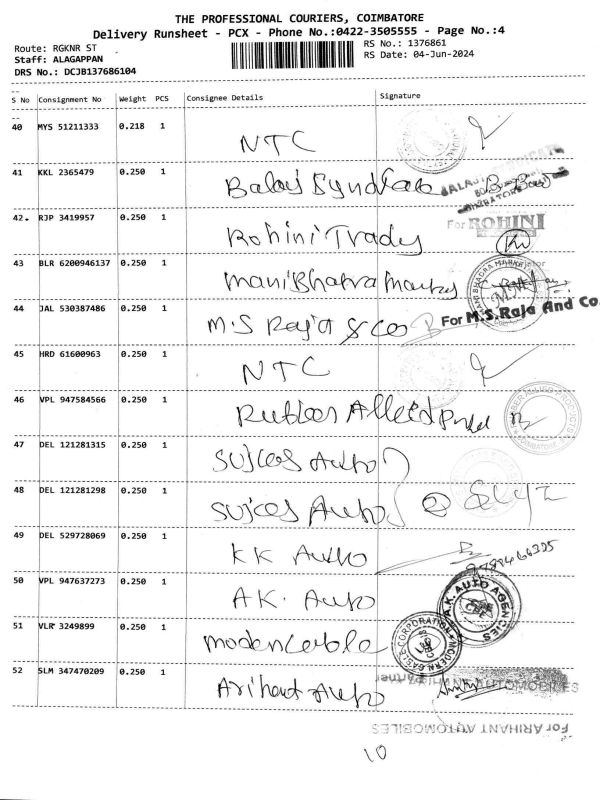 THE PROFESSIONAL COURIERS, COIMBATORE
Delivery Runsheet - PCX - Phone No.:0422-3505555 - Page No.:4
Route: RGKNR ST
RS No.: 1376861
Staff: ALAGAPPAN
RS Date: 04-Jun-2024
DRS No.: DCJB137686104
S No Consignment No Weight PCS Consignee Details Signature
40 MYS 51211333 0.218 1 NTC
41 KKL 2365479 0.250 1 Balaji Syndicate
42 RJP 3419957 0.250 1 Rohini Tradg
For ROHINI
43 BLR 6200946137 0.250 1 Mani Bhatra
44 JAL 530387486 0.250 1 M.S Raja & Co
For M.S.Raja And Co
45 HRD 61600963 0.250 1 NTC
46 VPL 947584566 0.250 1 Rubber Allied
47 DEL 121281315 0.250 1 Sujces Auto
48 DEL 121281298 0.250 1 Sujces Auto
49 DEL 529728069 0.250 1 KK Auto
50 VPL 947637273 0.250 1 A.K. Auto
A.K. AUTO AGENCIES
51 VLR 3249899 0.250 1
MODERN GATE CORPORATION
52 SLM 347470209 0.250 1 Arihant Auto
ARIHANT AUTOMOBILES
Partner
For ARIHANT AUTOMOBILES
10